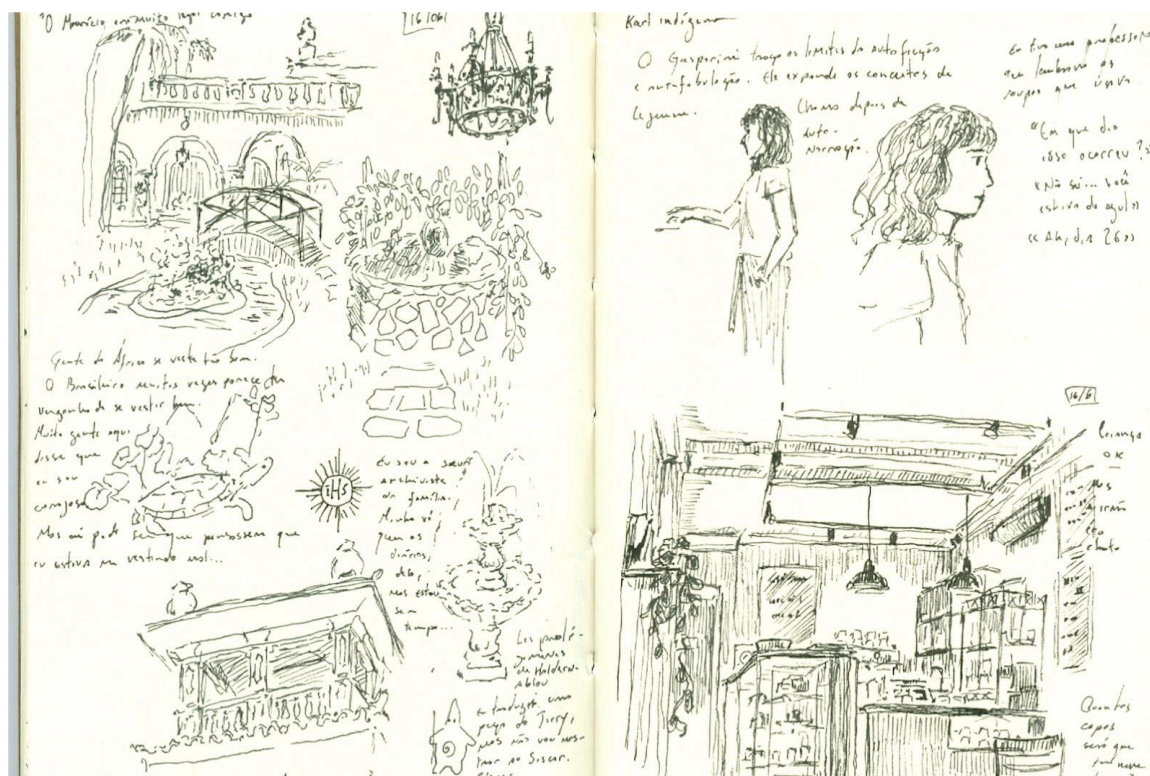 "O Maurício era muito legal comigo
16/06
Gente da África se veste tão bem.
O Brasileiro muitas vezes parece ter
vergonha de se vestir bem.
Muita gente aqui
disse que
eu sou
corajoso
Mas aí pode ser que pensassem que
eu estava me vestindo mal...
IHS
Eu sou a
archivista
da família.
Minha vó
quer os
diários
dela,
mas estou
sem
tempo...
Les prolé-
gomènes
de Haldern-
ablou
eu traduzi, uma
peça do Jarry,
mas não vou mos-
trar ao Siscar.
Karl indígena
O Gasparini traça os limites da autoficção
e autofabulação. Ele expande os conceitos de
Lejeune.
Chama depois de
auto-
narração.
Eu tive uma professora
que lembrava as
roupas que usava.
"Em que dia
isso ocorreu?"
"Não sei... você
estava de azul"
"Ah, dia 26"
16/6
Criança
ok
Mas
irmão
é
chato
Quantos
copos
será que